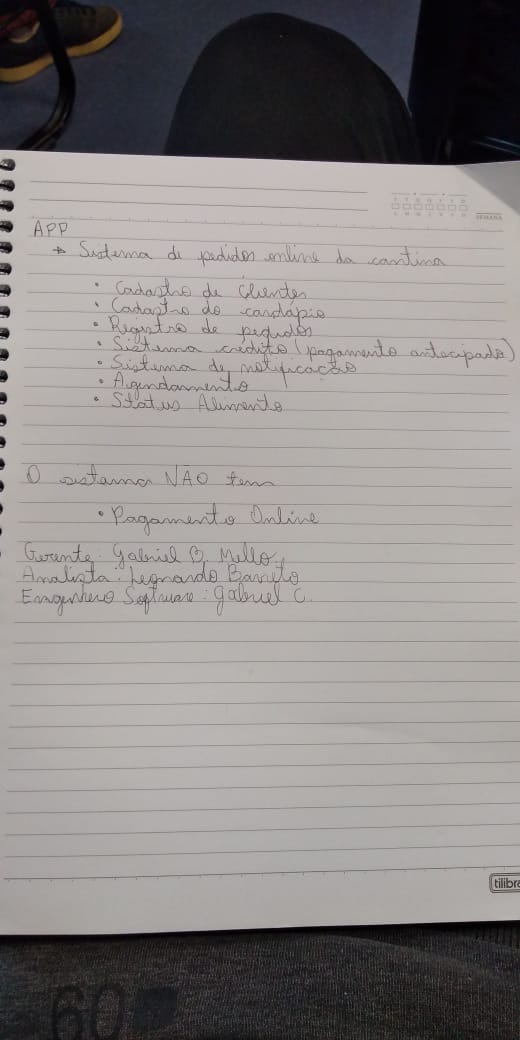 SEMANA
APP
→ Sistema de pedidos online da cantina
• Cadastro de Clientes
• Cadastro do cardápio
• Registro de pedidos
• Sistema crédito (pagamento antecipado)
• Sistema de notificação
• Agendamento
• Status Alimento
O sistema NÃO tem
• Pagamento Online
Gerente: Gabriel B. Mello
Analista: Leonardo Barreto
Engenhero Software: Gabriel C.
tilibra
60